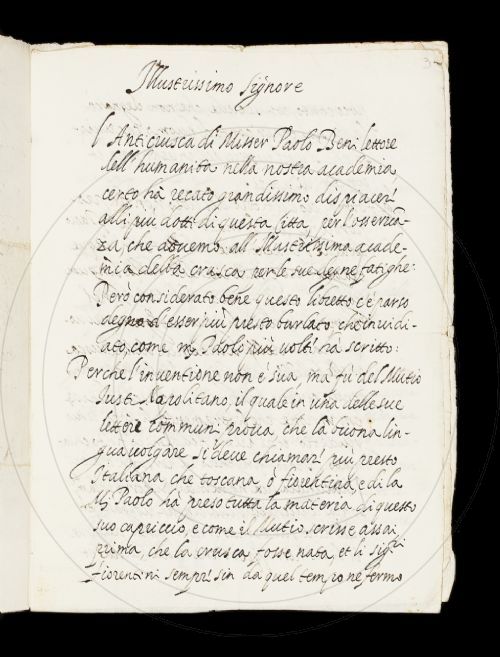 3
Illustrissimo Signore
l'Anticrusca di Misser Paolo Beni lettore
dell'humanita nella nostra academia
certo hà recato grandissimo dispiacer'
alli più dotti di questa citta, per l'osserua-
za, che douemo all'Illustrissima acade-
mia della crusca per le sue degne fatighe:
Però considerato bene questo libretto c'è parso
degno d'esser più presto burlato, che inuidi-
ato, come mr Paolo più volti hà scritto:
Perche l'inuentione non è sua, mà fù del Mutio
Iusti Napolitano, il quale in una delle sue
lettere communi proua che la buona lin-
gua uolgare si deue chiamar' più presto
Italiana che toscana, ò fiorentina, e di la
Mr Paolo hà preso tutta la materia di questo
suo capriccio, e come il Mutio scrisse assai
prima, che la crusca fosse nata, et li sigri
fiorentini sempr' sin da quel tempo ne fermo